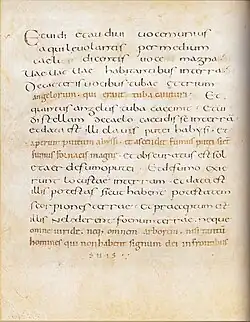 Et vidi et audivi vocem unius
aquile volantis per medium
caeli dicentis voce magna
Vae vae vae habitantibus in terra
De ceteris vocibus tubae trium
angelorum qui erant tuba canituri Et
quintus angelus tuba cecinit et vi
di stellam de caelo cecidisse in terra
et data est illi clavis putei habysi et
aperuit puteum abyssi et ascendit fumus putei sicut
fumus fornacis magnis et obscuratus est sol
et aer de fumo putei Et de fumo exie
runt locustae in terram et data est
illis potestas sicut habent potestatem
scorpiones terrae et praeceptum est
illis ne lederent fenum terrae neque
omne viride neq. omnem arborem nisi tantū
homines qui non habent signum dei in frontibus
suis